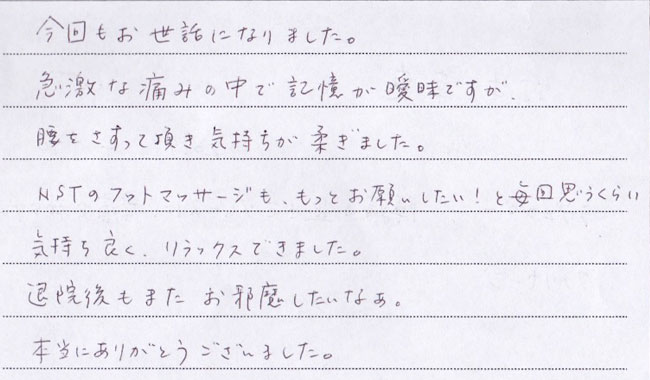 今回もお世話になりました。
急激な痛みの中で記憶が曖昧ですが、
腰をさすって頂き気持ちが柔ぎました。
NSTのフットマッサージも、もっとお願いしたい!と毎回思うくらい
気持ち良く、リラックスできました。
退院後もまたお邪魔したいなぁ。
本当にありがとうございました。